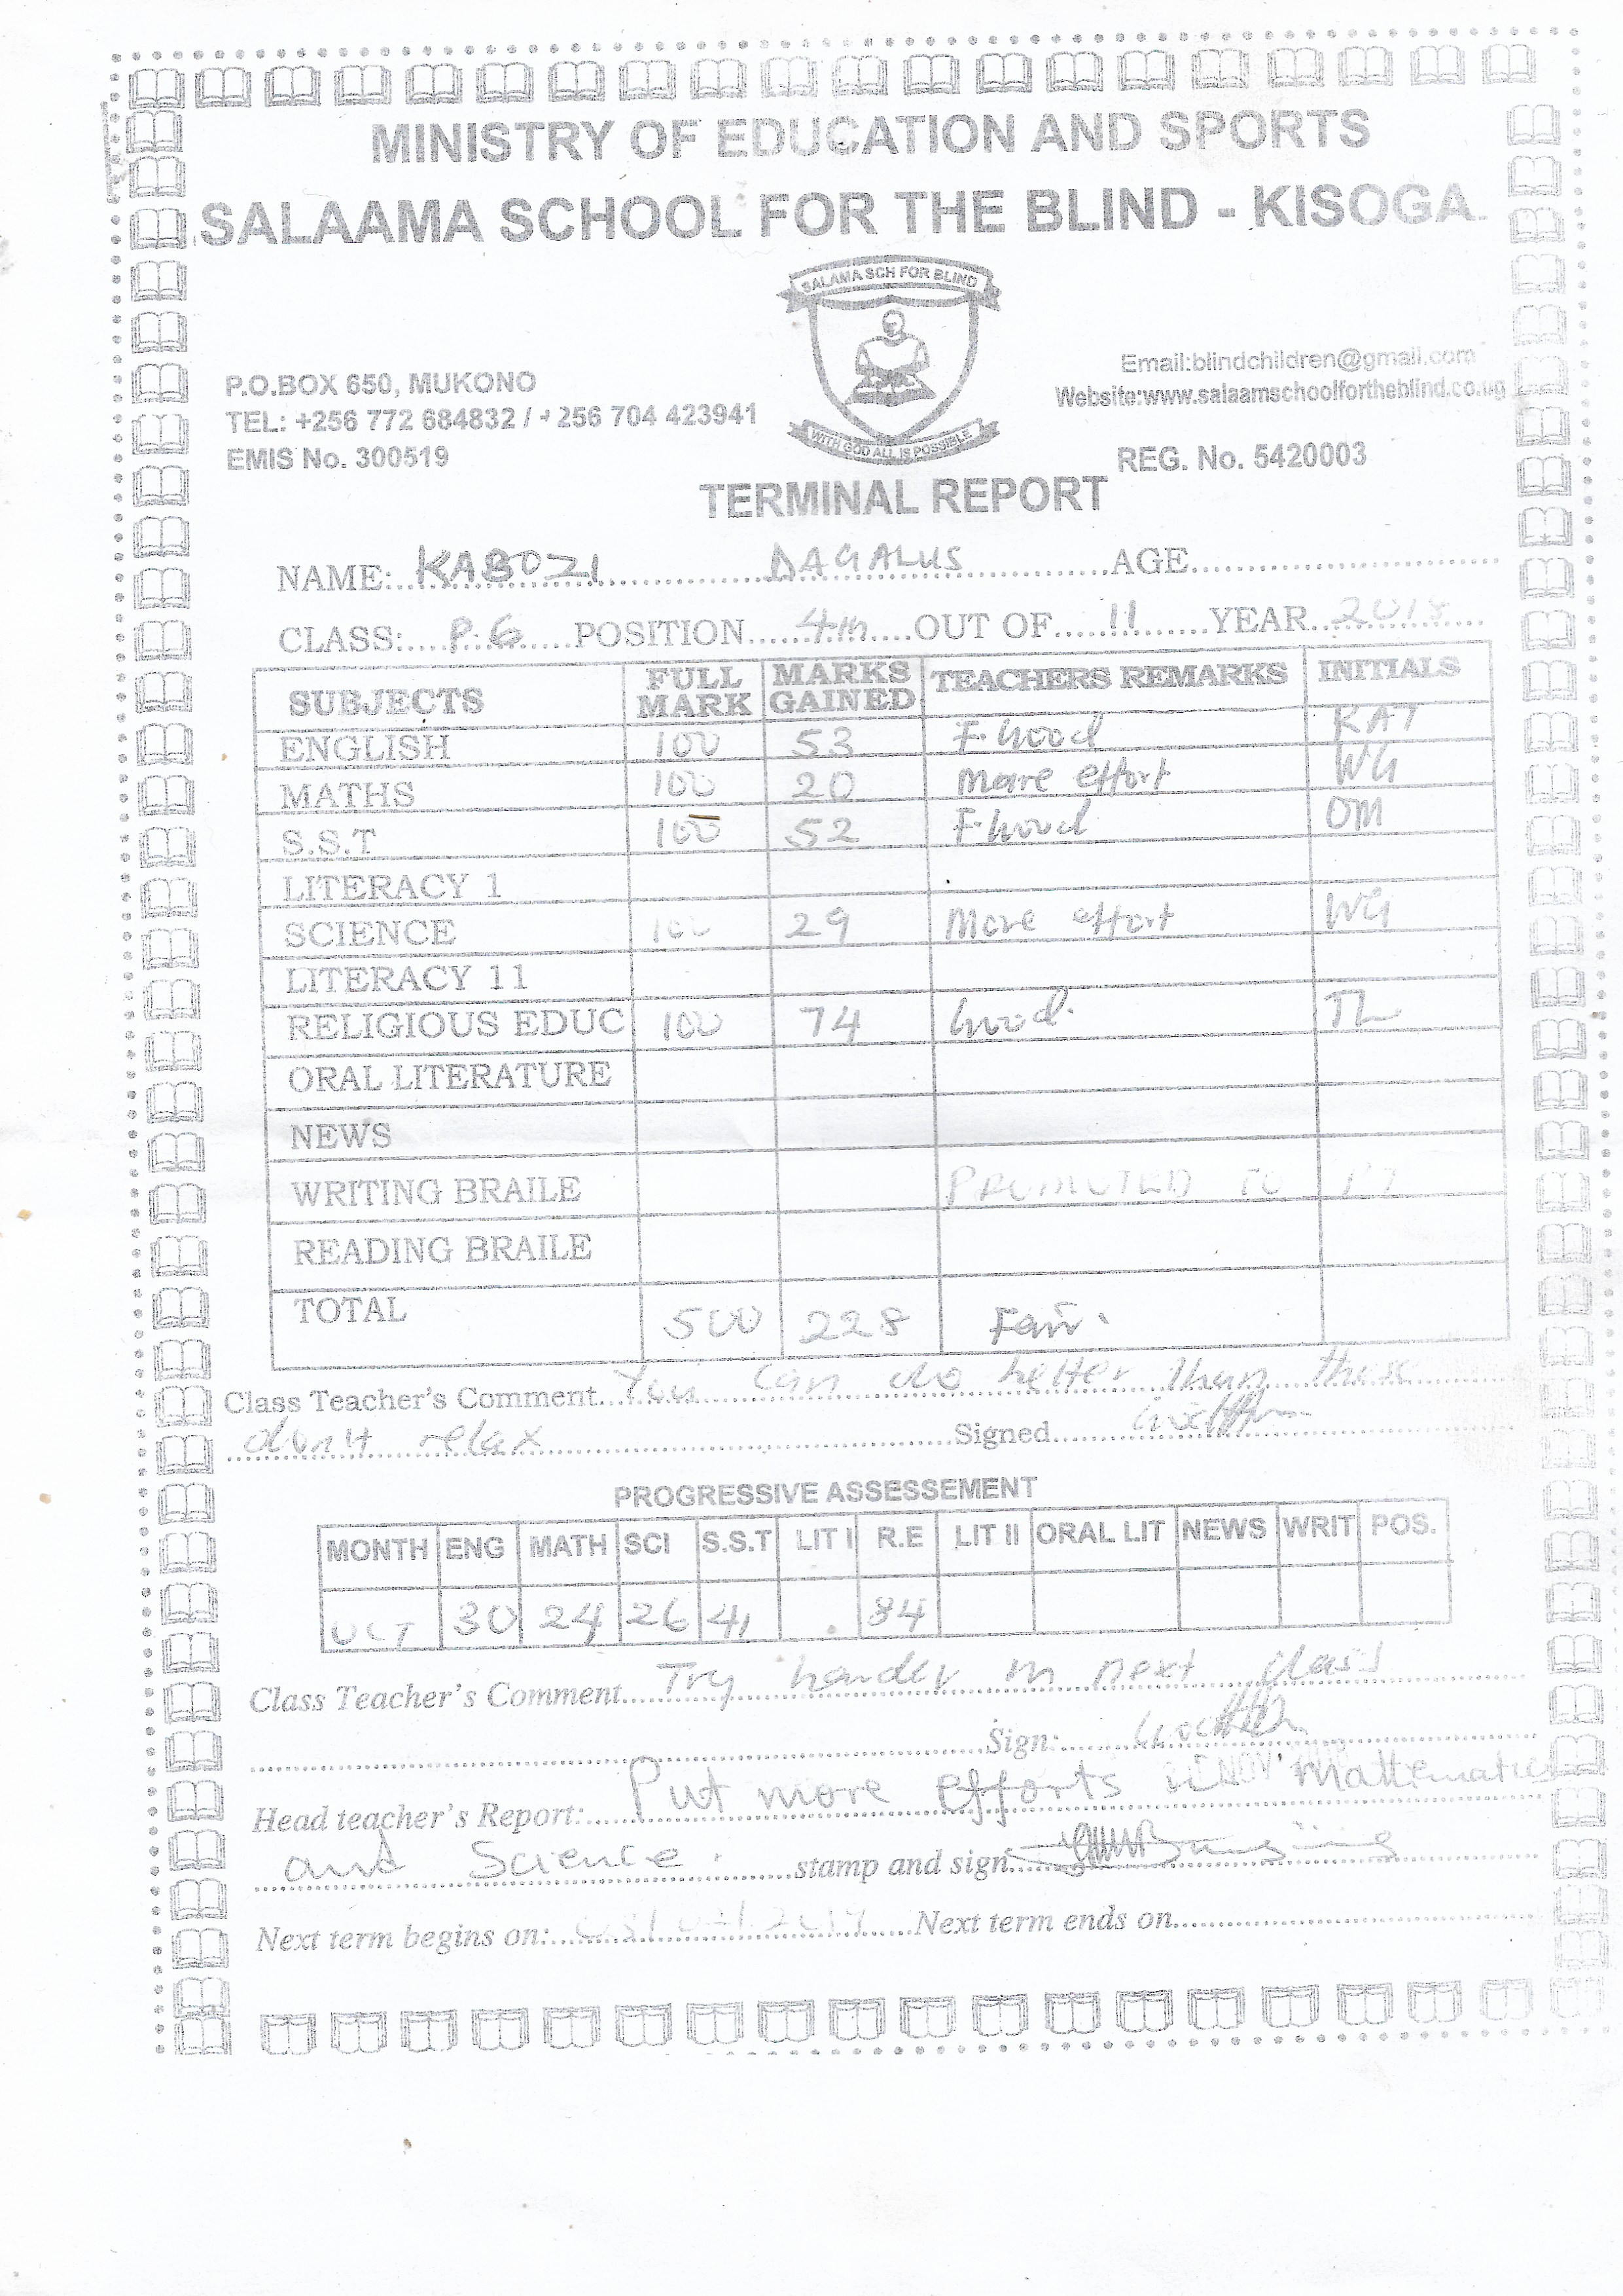 MINISTRY OF EDUCATION AND SPORTS
SALAAMA SCHOOL FOR THE BLIND - KISOGA.
SALAMA SCH FOR BLIND
WITH GOD ALL IS POSSIBLE
P.O.BOX 650, MUKONO
TEL: +256 772 684832 / +256 704 423941
EMIS No. 300519
Email:blindchildren@gmail.com
Website:www.salaamschoolfortheblind.co.ug
REG. No. 5420003
TERMINAL REPORT
NAME: KABOZI DAGALUS AGE
CLASS: P.6 POSITION 4TH OUT OF 11 YEAR 2018
SUBJECTS FULL MARK MARKS GAINED TEACHERS REMARKS INITIALS
ENGLISH 100 53 F.Good KAT
MATHS 100 20 more effort WG
S.S.T 100 52 F.Good OM
LITERACY 1
SCIENCE 100 29 More effort WG
LITERACY 11
RELIGIOUS EDUC 100 74 Good. TL
ORAL LITERATURE
NEWS
WRITING BRAILE PROMOTED TO P.7
READING BRAILE
TOTAL 500 228 Fair.
Class Teacher's Comment You can do better than this
don't relax Signed
PROGRESSIVE ASSESSEMENT
MONTH ENG MATH SCI S.S.T LIT I R.E LIT II ORAL LIT NEWS WRIT POS.
OCT 30 24 26 41 84
Class Teacher's Comment Try harder in next class
Sign:
Head teacher's Report: Put more efforts in Mathematics
and Science. stamp and sign
Next term begins on: Next term ends on